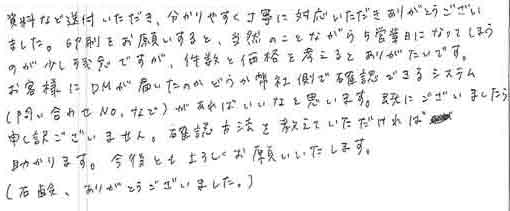 資料など送付いただき、分かりやすく丁寧に対応いただきありがとうござい
ました。印刷をお願いすると、当然のことながら5営業日になってしまう
のが少し残念ですが、件数と価格を考えるとありがたいです。
お客様にDMが届いたのかどうか弊社側で確認できるシステム
(問い合わせNO.など)があればいいなと思います。既にございましたら
申し訳ございません。確認方法を教えていただければ
助かります。今後ともよろしくお願いいたします。
(石鹸、ありがとうございました。)